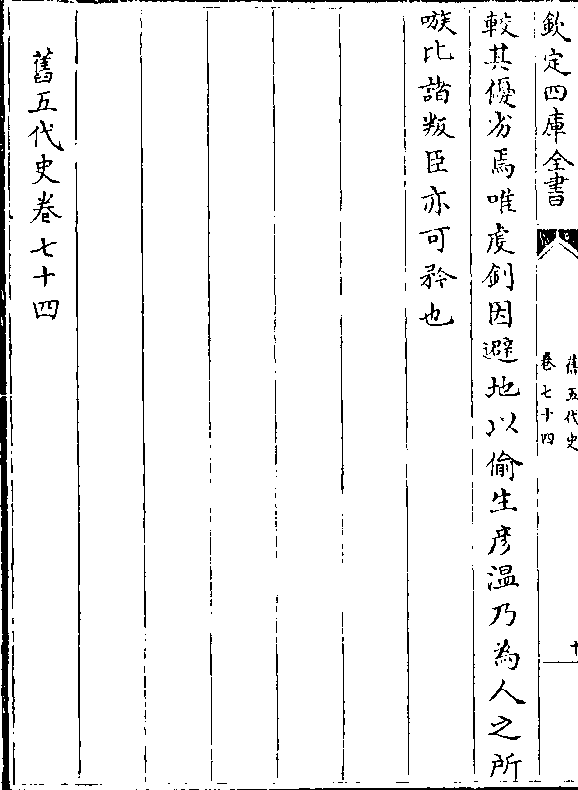 欽定四庫全書
舊五代史
卷七十四
十
較其優劣焉唯虔釗因避地以偷生彥温乃為人之所
嗾比諸叛臣亦可矜也
舊五代史卷七十四